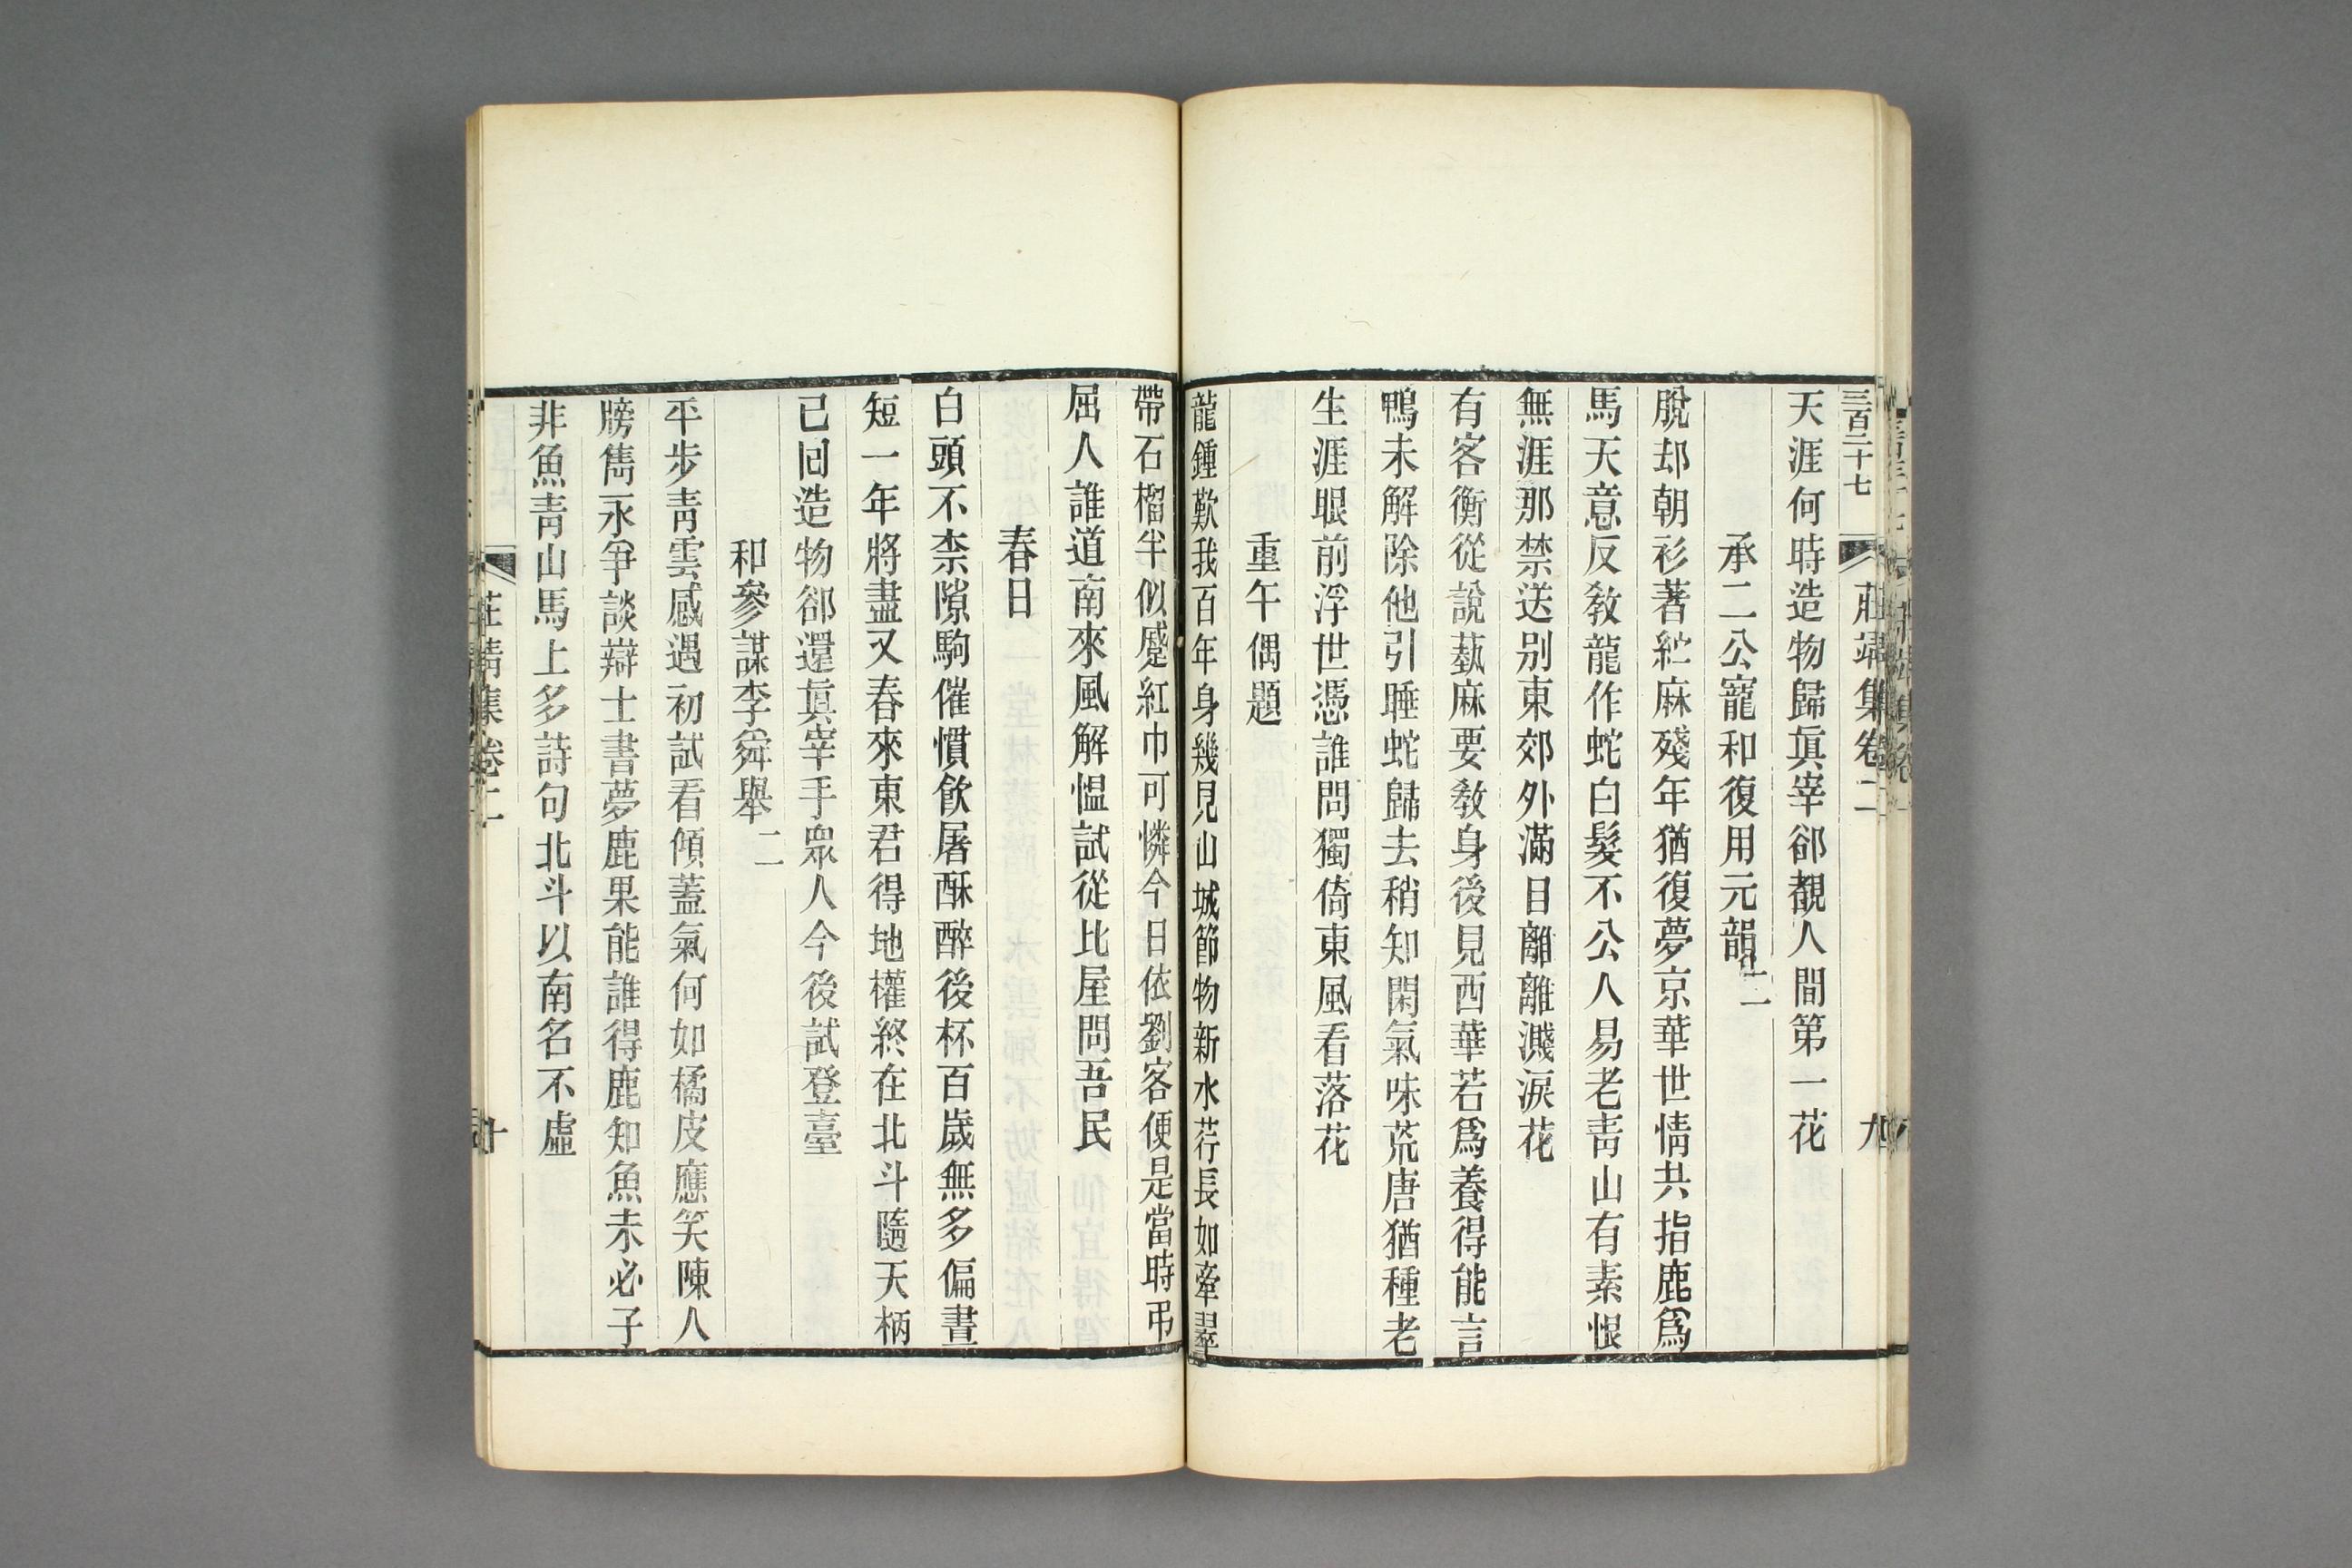 三百二十七
莊靖集卷二
九
天涯何時造物歸眞宰卻覩人間第一花
承二公寵和復用元韻二
脫却朝衫著紵麻殘年猶復夢京華世情共指鹿爲
馬天意反敎龍作蛇白髮不公人易老靑山有素恨
無涯那禁送别東郊外滿目離離濺淚花
有客衡從說蓺麻要敎身後見西華若爲養得能言
鴨未解除他引睡蛇歸去稍知閑氣味荒唐猶種老
生涯眼前浮世憑誰問獨倚東風看落花
重午偶題
龍鍾歎我百年身幾見山城節物新水荇長如牽翠
帶石榴半似蹙紅巾可憐今日依劉客便是當時弔
屈人誰道南來風解慍試從比屋問吾民
春日
白頭不柰隙駒催慣飮屠酥醉後杯百歲無多偏晝
短一年將盡又春來東君得地權終在北斗隨天柄
已回造物卻還眞宰手衆人今後試登臺
和參謀李舜舉二
平步靑雲感遇初試看傾蓋氣何如橘皮應笑陳人
牓雋永爭談辯士書夢鹿果能誰得鹿知魚未必子
非魚靑山馬上多詩句北斗以南名不虛
莊靖集卷二
十